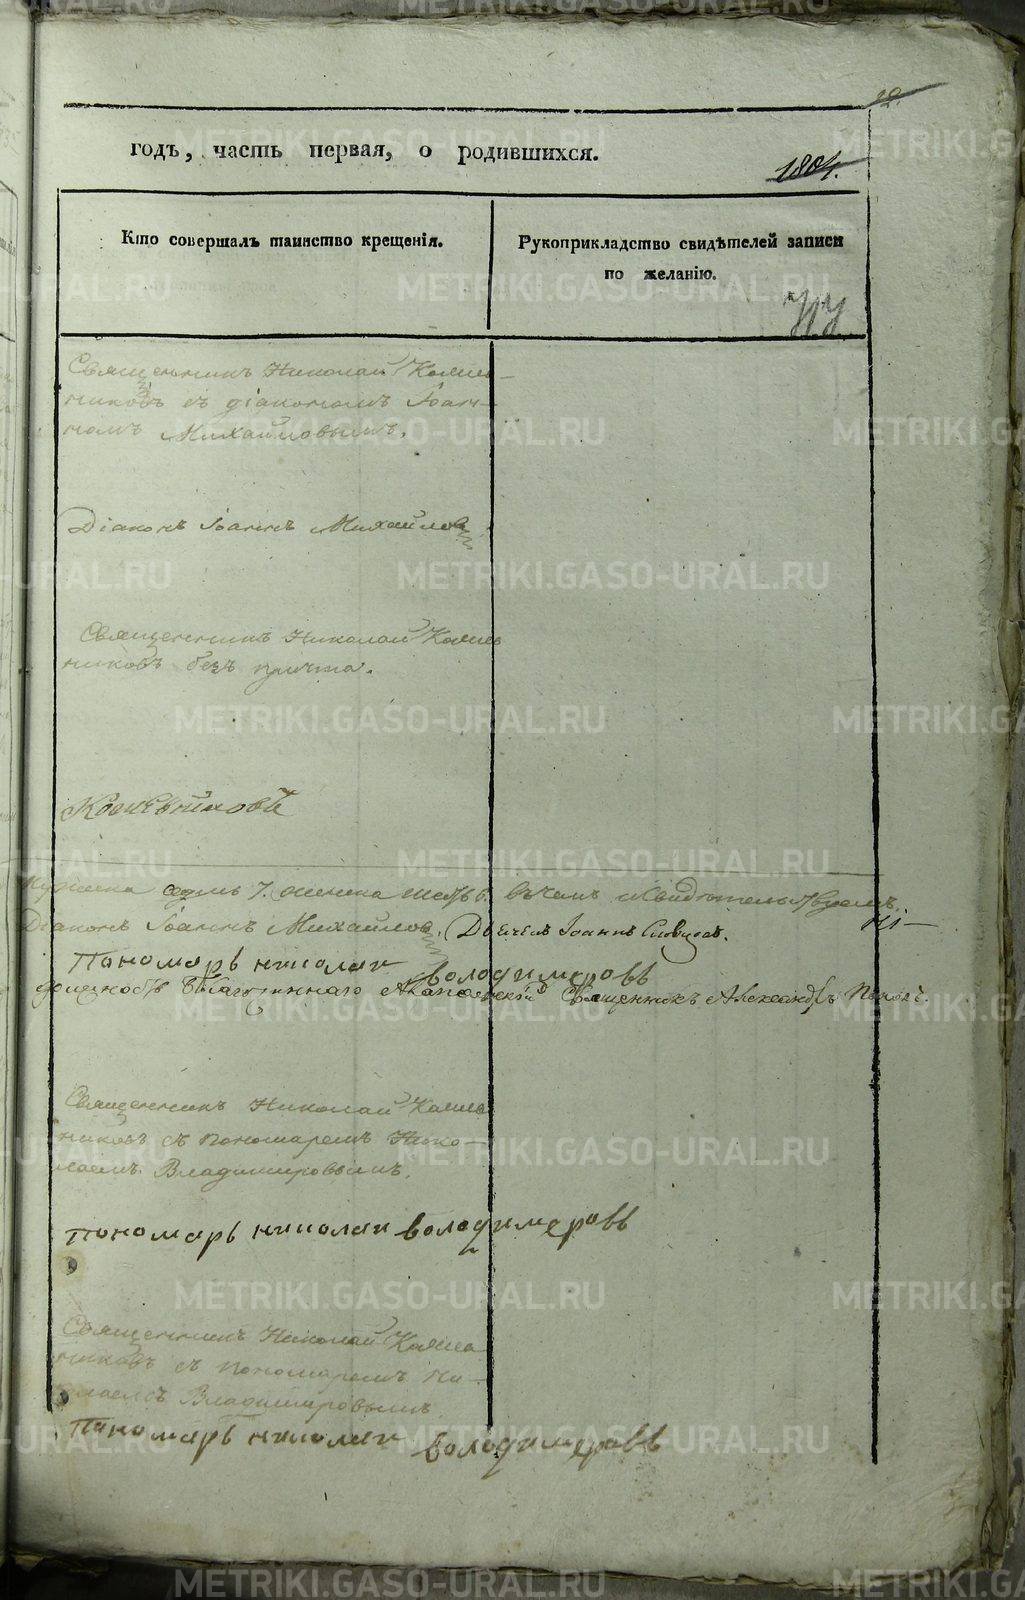 годъ, часть первая, о родившихся.
1804.
Кто совершалъ таинство крещенія.
Рукоприкладство свидѣтелей записи
по желанію.
Священникъ Николай
съ діакономъ Іоан-
номъ Михайловымъ.
Діаконъ Іоаннъ Михайловъ
Священникъ Николай
никовъ безъ причта.
седмь 7. женска шесть 6. въ чемъ и свидѣтельствуемъ
Діаконъ Іоаннъ Михайловъ. Дьячекъ Іоаннъ
Пономарь николаи володимеровъ
должность Благочиннаго Священникъ Александръ Поповъ.
Священникъ Николай
никовъ съ пономаремъ Нико-
лаемъ Владимировымъ.
пономарь николаи володимеровъ
Священникъ Николай
никовъ съ пономаремъ Ни-
лаемъ Владимировымъ
Пономарь николаи володимеровъ
METRIKI.GASO-URAL.RU